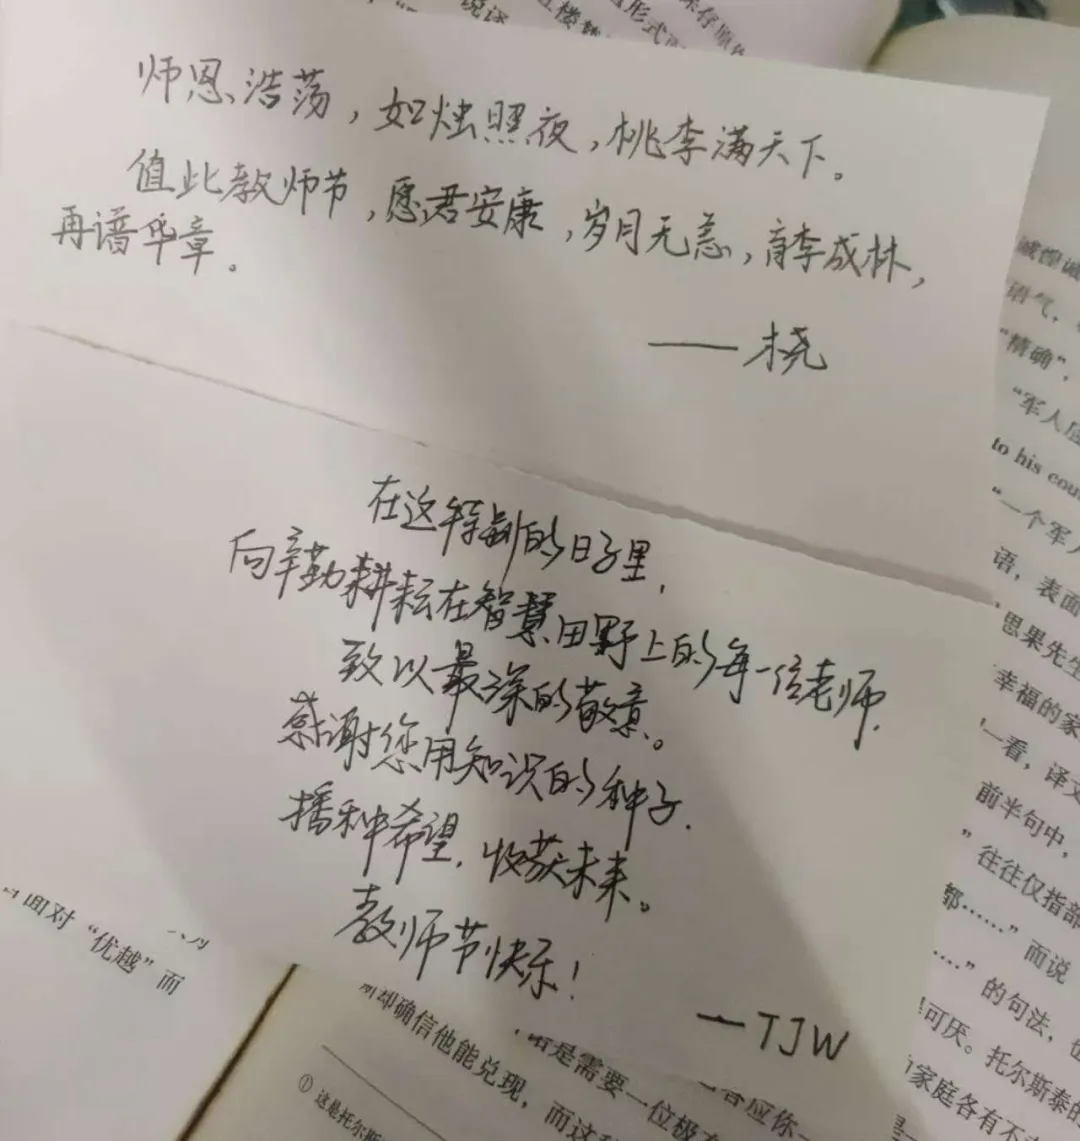 保存原
说译
红楼
形式
师恩浩荡，如烛照夜，桃李满天下。
值此教师节，愿君安康，岁月无恙，育李成林，
再谱华章。
——桡
在这特别的日子里，
向辛勤耕耘在智慧田野上的每一位老师，
致以最深的敬意。
感谢您用知识的种子，
播种希望，收获未来。
教师节快乐！
—TJW
语气，
“精确”，
“军人应
to his cou
“一个军人
语，表面
思果先生
幸福的家
一看，译文
前半句中，
”往往仅指部
都……”而说
……”的句法，
可厌。托尔斯泰的
家庭各有不
面对“优越”而
却确信他能兑现，而这
是需要一位极
答应你
① 这是托尔斯